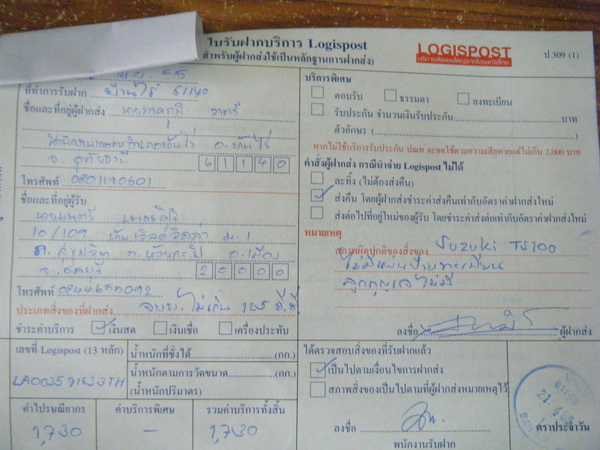 ใบรับฝากบริการ Logispost
สำหรับผู้ฝากส่งใช้เป็นหลักฐานการฝากส่ง)
LOGISPOST
ป.309 (1)
ที่ทำการรับฝาก บ้านไร่ 61140
ชื่อและที่อยู่ผู้ฝากส่ง
อ.บ้านไร่
จ.อุทัยธานี 61140
โทรศัพท์ 0801190601
ชื่อและที่อยู่ผู้รับ
10/109 ม.1
อ.เมือง
จ.ชลบุรี 20000
โทรศัพท์
ประเภทสิ่งของที่ฝากส่ง จยย. ไม่เกิน 125 ซี.ซี
ชำระค่าบริการ เงินสด เงินเชื่อ เครื่องประทับ
เลขที่ Logispost (13 หลัก) น้ำหนักที่ชั่งได้ (กก.)
น้ำหนักตามการวัดขนาด (กก.)
(น้ำหนักปริมาตร)
ค่าไปรษณียากร ค่าบริการพิเศษ รวมค่าบริการทั้งสิ้น
1,730 – 1,730
บริการพิเศษ
ตอบรับ ธรรมดา ลงทะเบียน
รับประกัน จำนวนเงินรับประกัน บาท
ตัวอักษร ( )
หากไม่ใช้บริการรับประกัน ปณท จะชดใช้ตามความเสียหายแต่ไม่เกิน 2,000 บาท
คำสั่งผู้ฝากส่ง กรณีนำจ่าย Logispost ไม่ได้
ละทิ้ง (ไม่ต้องส่งคืน)
ส่งคืน โดยผู้ฝากส่งชำระค่าส่งคืนเท่ากับอัตราค่าฝากส่งใหม่
ส่งต่อไปที่อยู่ใหม่ของผู้รับ โดยชำระค่าส่งต่อเท่ากับอัตราค่าฝากส่งใหม่
หมายเหตุ
สภาพผิดปกติของสิ่งของ Suzuki TS100
ไม่มีแผ่นป้ายทะเบียน
ลูกกุญแจไม่มี
ลงชื่อ ผู้ฝากส่ง
ได้ตรวจสอบสิ่งของที่รับฝากแล้ว
เป็นไปตามเงื่อนไขการฝากส่ง
สภาพสิ่งของเป็นไปตามที่ผู้ฝากส่งหมายเหตุไว้
ลงชื่อ
พนักงานรับฝาก
ตราประจำวัน